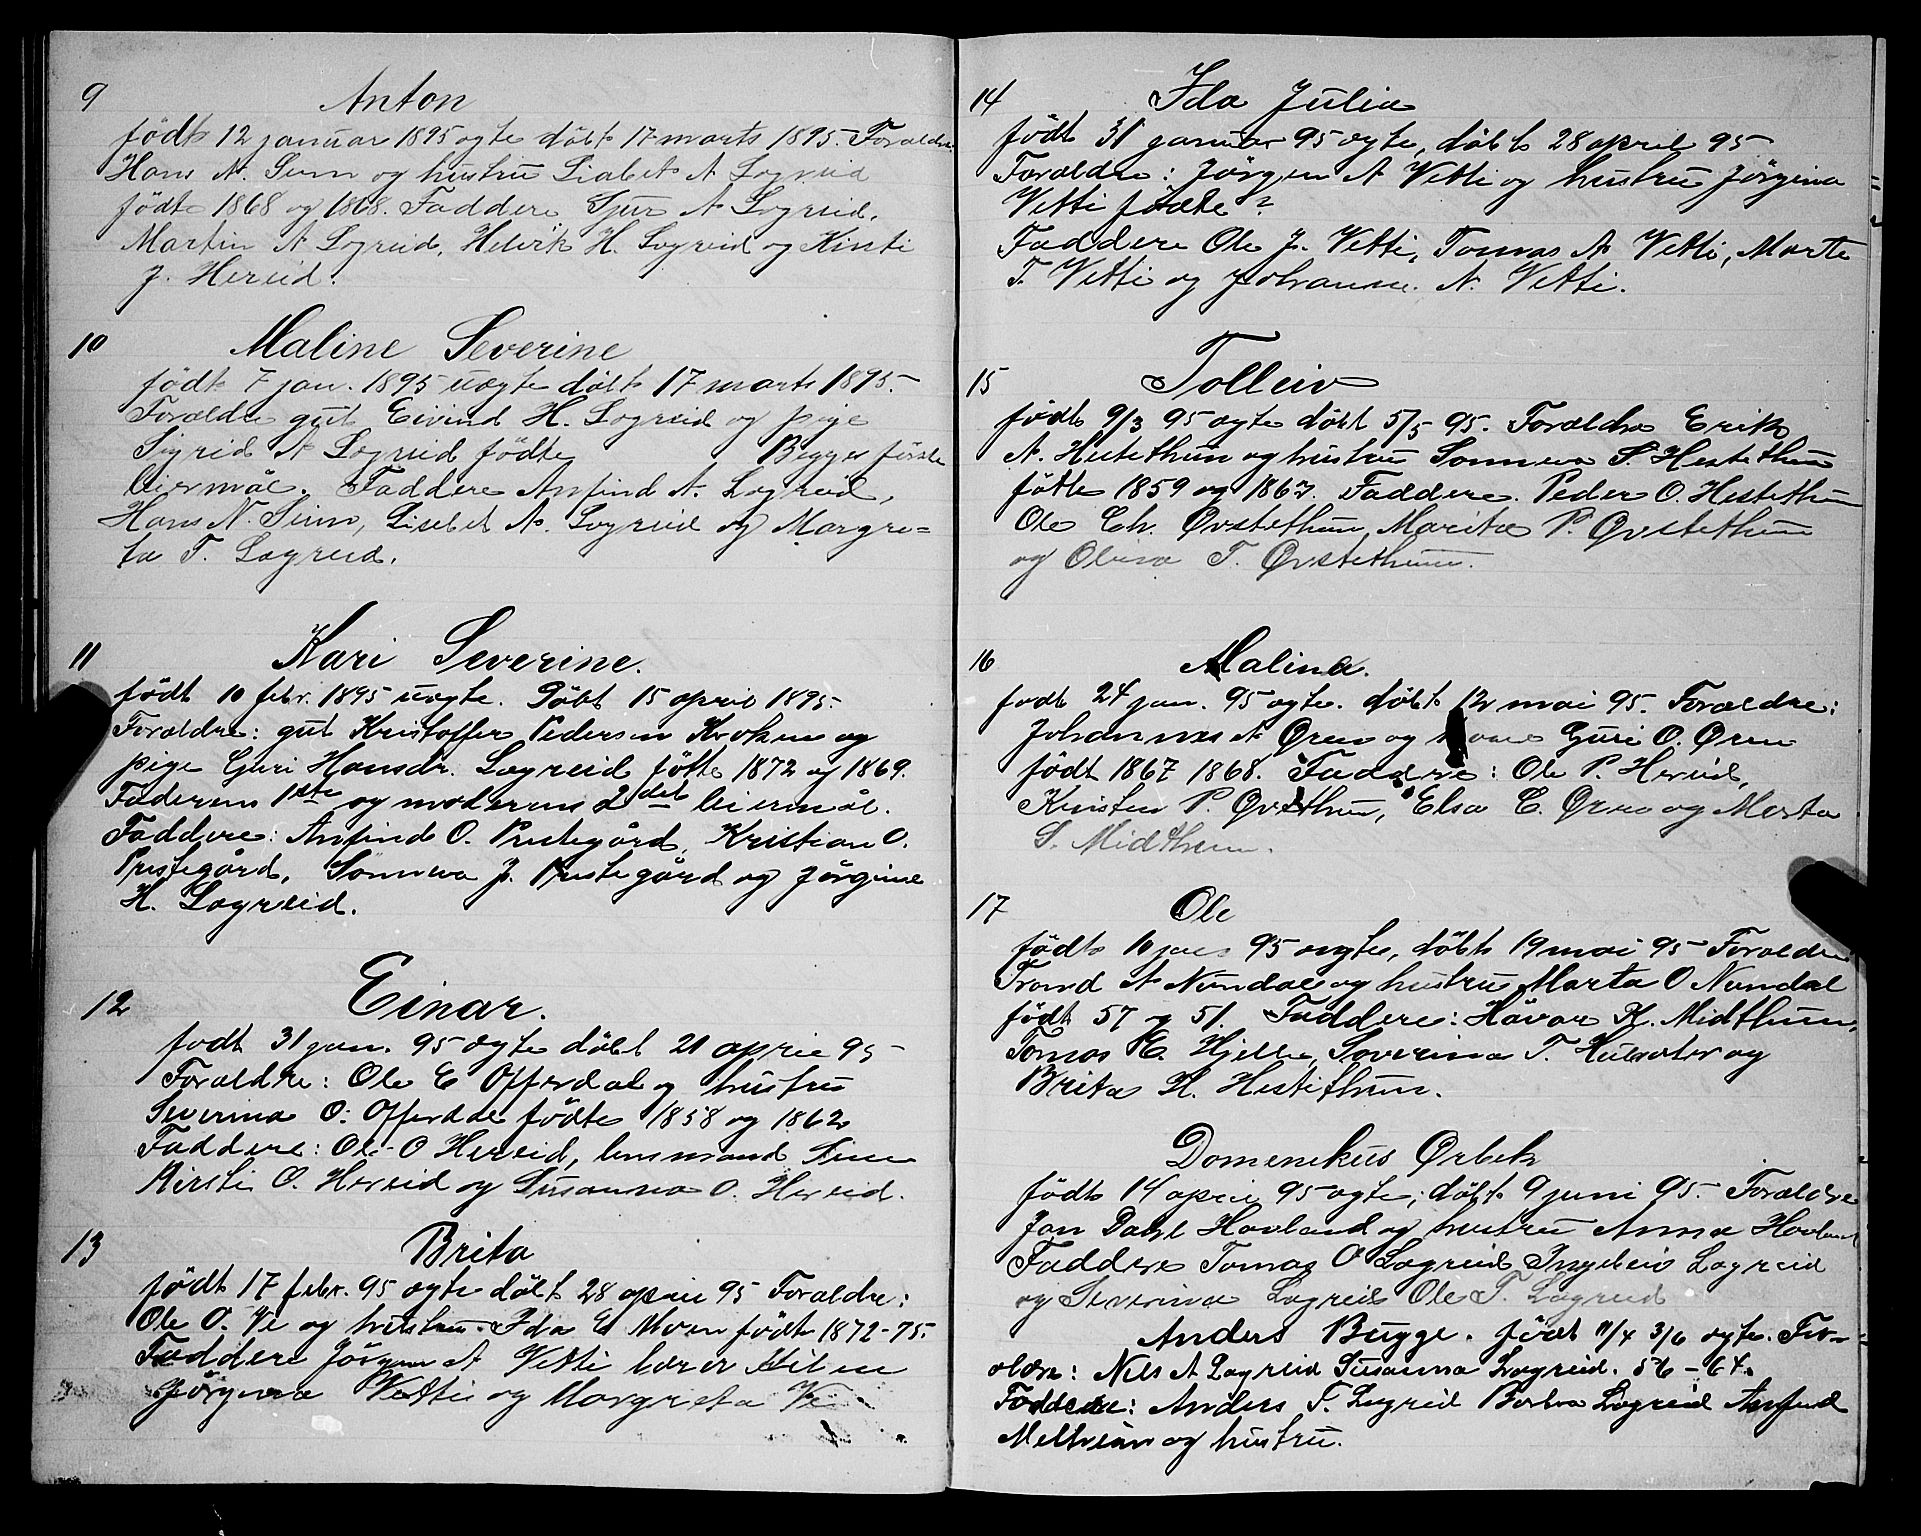 9 Anton
födt 12 januar 1895 ægte döbt 17 marts 1895. Foræld
Hans N. Seim og hustru Lisbet A Lægreid
födte 1868 og 1868. Faddere Sjur A Lægreid,
Martin A Lægreid, Helvik H. Lægreid og Kirsti
J. Hereid.
10 Maline Severine
födt 7 jan. 1895 uægte döbt 17 marts 1895.
Forældre gut Eivind H. Lægreid og pige
Sigrid A Lægreid födte Begges förste
leiermål. Faddere Anfind A. Lægreid,
Hans N. Seim, Lisebet A. Lægreid og Margre=
ta T. Lægreid.
11 Kari Severine.
födt 10 febr. 1895 uægte. Döbt 15 april 1895.
Forældre: gut Kristoffer Pedersen Kroken og
pige Guri Hansdr. Lægreid fötte 1872 og 1869.
Faderens 1ste og moderens 2det leiermål.
Faddere: Anfind O. Prestegård, Kristian O.
Prestegård, Sönneva J. Prestegård og Jörgine
H. Lægreid.
12 Einar.
födt 31 jan. 95 ægte döbt 21 april 95
Forældre: Ole E Offerdal og hustru
Severina O. Offerdal födte 1858 og 1862
Faddere: Ole O Hereid, lensmand Seim
Kirsti O. Hereid og Susanna O. Hereid.
13 Brita
födt 17 febr. 95 ægte döbt 28 april 95 Forældre:
Ole O. Ve og hustru Ida E Moen födt 1872-75.
Faddere Jörgen A Vetti lærer
Jörgina Vetti og Margreta Ve
14 Ida Julia
födt 31 januar 95 ægte, döbt 28 april 95
Forældre: Jörgen A Vetti og hustru Jörgina
Vetti födte?
Faddere Ole J. Vetti, Tomas A Vetti, Marte
T. Vetti og Johanne A. Vetti.
15 Tolleiv
födt 9/3 95 ægte döbt 5/5 95. Forældre Erik
A. Hestethun og hustru Sönneva S. Hestethun
fötte 1859 og 1862. Faddere. Peder O. Hestethun
Ole Ch. Øvstethun, Marita P. Øvstethun
og Olina T. Øvstethun.
16 Malina.
födt 24 jan. 95 ægte. döbt 12 mai 95. Forældre:
Johannes A Øren og kone Guri O. Øren
födt 1867 1868. Faddere: Ole P. Hereid,
Kristen P. Øvstthun, Elsa E. Øren og Merta
S. Midthun.
17 Ole
födt 10 jan 95 ægte, döbt 19 mai 95 Forældre
Trond A Nundal og hustru Marta O Nundal
födt 57 og 51. Faddere: Håvar K. Midthun,
Tomas E. Hjelle, Soverina T. og
Brita H. Hestethun.
Domenikus Ørbek
födt 14 april 95 ægte, döbt 9 juni 95. Forældre
Jan Dahl Hovland og hustru Anna Hovland
Faddere Tomas O Lægreid Ingeleiv Lægreid
og Severina Lægreid Ole T. Lægreid
Anders Bugge. födt 11/4 3/6 ægte. For-
ældre: Nils A Lægreid Susanna Lægreid. 56-64.
Faddere: Anders T. Lægreid Barbra Lægreid Anfind
Melheim og hustru.